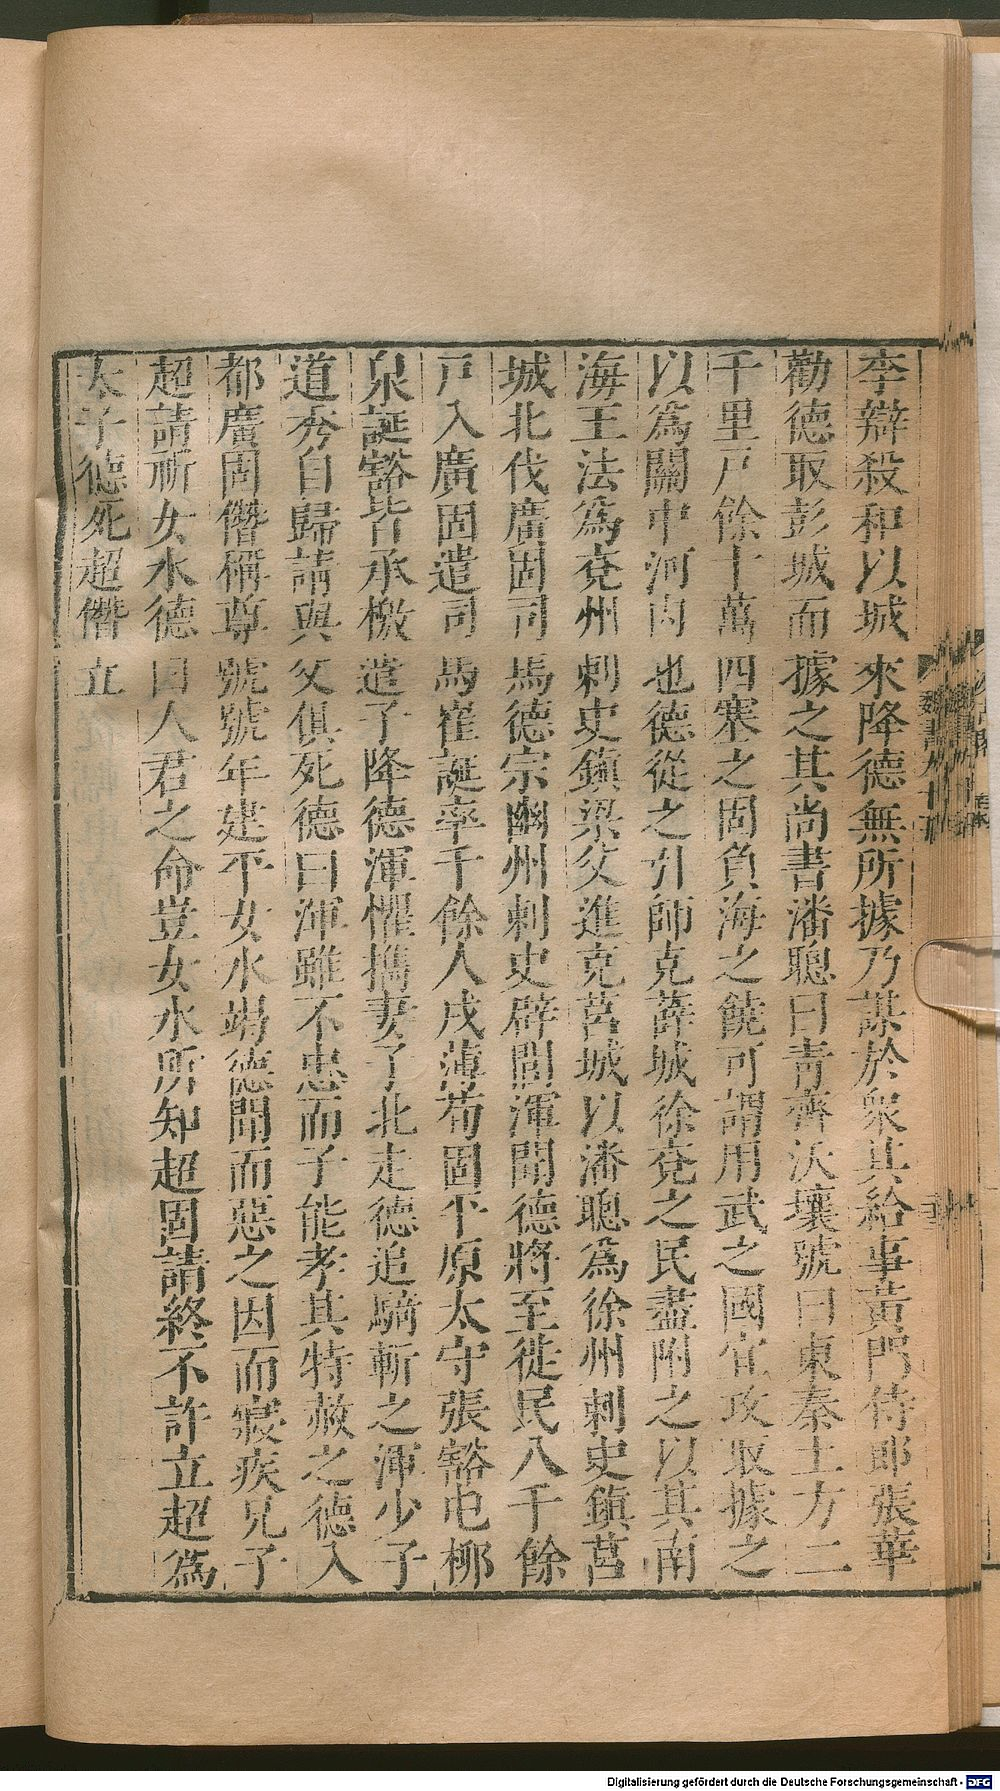 李辯殺和以城來降德無所據乃謀於衆其給事黃門侍郎張華
勸德取彭城而據之其尚書潘聰曰青齊沃壤號曰東秦土方二
千里戸餘十萬四塞之固負海之饒可謂用武之國宜攻取據之
以爲關中河内也德從之引師克薛城徐兗之民盡附之以其南
海王法爲兗州刺史鎮梁父進克莒城以潘聰爲徐州刺史鎮莒
城北伐廣固司馬德宗幽州刺史辟閭渾聞德將至徙民八千餘
戸入廣固遣司馬崔誕率千餘人戍薄荀固平原太守張豁屯柳
泉誕豁皆承檄遣子降德渾懼攜妻子北走德追騎斬之渾少子
道秀自歸請與父俱死德曰渾雖不忠而子能孝其特赦之德入
都廣固僭稱尊號號年建平女水竭德聞而惡之因而寢疾兄子
超請祈女水德曰人君之命豈女水所知超固請終不許立超爲
太子德死超僭立
魏書九十五
Digitalisierung gefördert durch die Deutsche Forschungsgemeinschaft - DFG